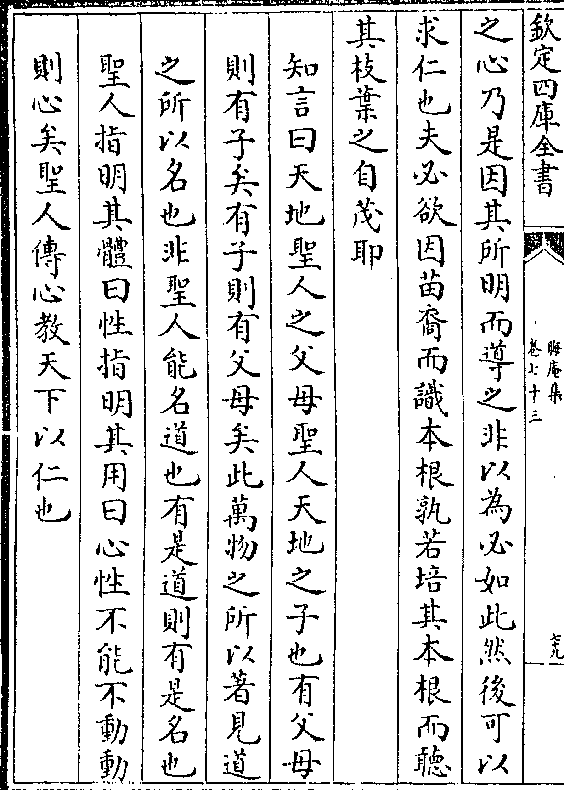 欽定四庫全書
晦庵集
卷七十三
七九
之心乃是因其所明而導之非以為必如此然後可以
求仁也夫必欲因苗裔而識本根孰若培其本根而聽
其枝葉之自茂耶
知言曰天地聖人之父母聖人天地之子也有父母
則有子矣有子則有父母矣此萬物之所以著見道
之所以名也非聖人能名道也有是道則有是名也
聖人指明其體曰性指明其用曰心性不能不動動
則心矣聖人傳心教天下以仁也